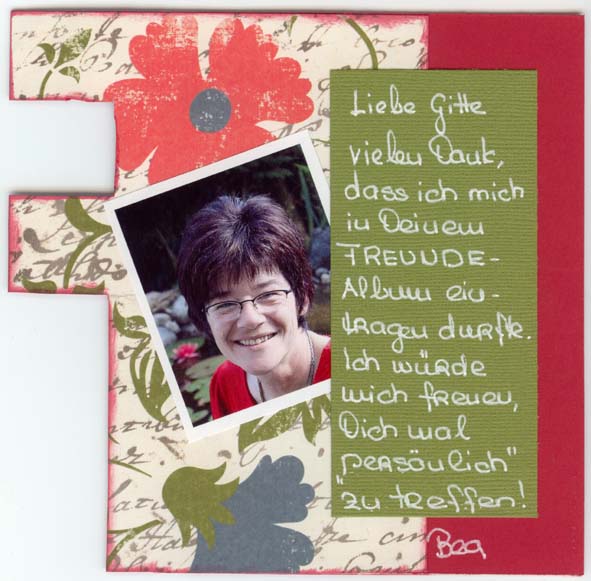 Liebe Gitte
vielen Dank,
dass ich mich
in Deinem
FREUNDE-
Album ein-
tragen durfte.
Ich würde
mich freuen,
Dich mal
"persönlich"
zu treffen!
Bea